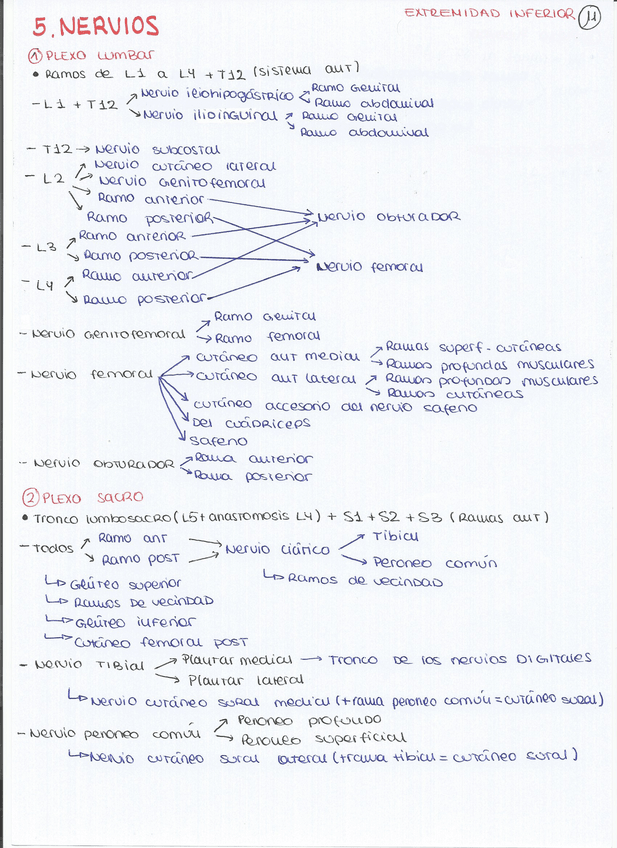 EXTREMIDAD INFERIOR μ
5. NERVIOS
① PLEXO LUMBAR
• Ramos de L1 a L4 + T12 (sistema ant)
- L1 + T12 ↗ Nervio iliohipogástrico < Ramo Genital
Ramo abdominal
↘ Nervio ilioinguinal ↗ Ramo Genital
↘ Ramo abdominal
- T12 → Nervio subcostal
- L2 ↗ Nervio cutáneo lateral
↗ Nervio Genitofemoral
↘ Ramo anterior
↘ Ramo posterior
Nervio obturador
- L3 ↗ Ramo anterior
↘ Ramo posterior
Nervio femoral
- L4 ↗ Ramo anterior
↘ Ramo posterior
- Nervio Genitofemoral ↗ Ramo Genital
→ Ramo femoral
- Nervio femoral → cutáneo ant medial ↗ Ramas superf-cutáneas
↘ Ramos profundas musculares
→ cutáneo ant lateral ↗ Ramos profundos musculares
↘ Ramos cutáneas
cutáneo accesorio del nervio safeno
Del cuádriceps
safeno
- Nervio obturador ↗ Rama anterior
↘ Rama posterior
② PLEXO SACRO
• Tronco lumbosacro (L5 + anastomosis L4) + S1 + S2 + S3 (Ramas ant)
- Todos ↗ Ramo ant
↘ Ramo post
→ Nervio ciático ↗ Tibial
↘ Peroneo común
↳ Ramos de vecindad
↳ Glúteo superior
↳ Ramos de vecindad
↳ Glúteo inferior
↳ Cutáneo femoral post
- Nervio Tibial ↗ Plantar medial → Tronco de los nervios digitales
→ Plantar lateral
↳ Nervio cutáneo sural medial (+rama peroneo común = cutáneo sural)
- Nervio peroneo común ↗ Peroneo profundo
→ Peroneo superficial
↳ Nervio cutáneo sural lateral (+rama tibial = cutáneo sural)